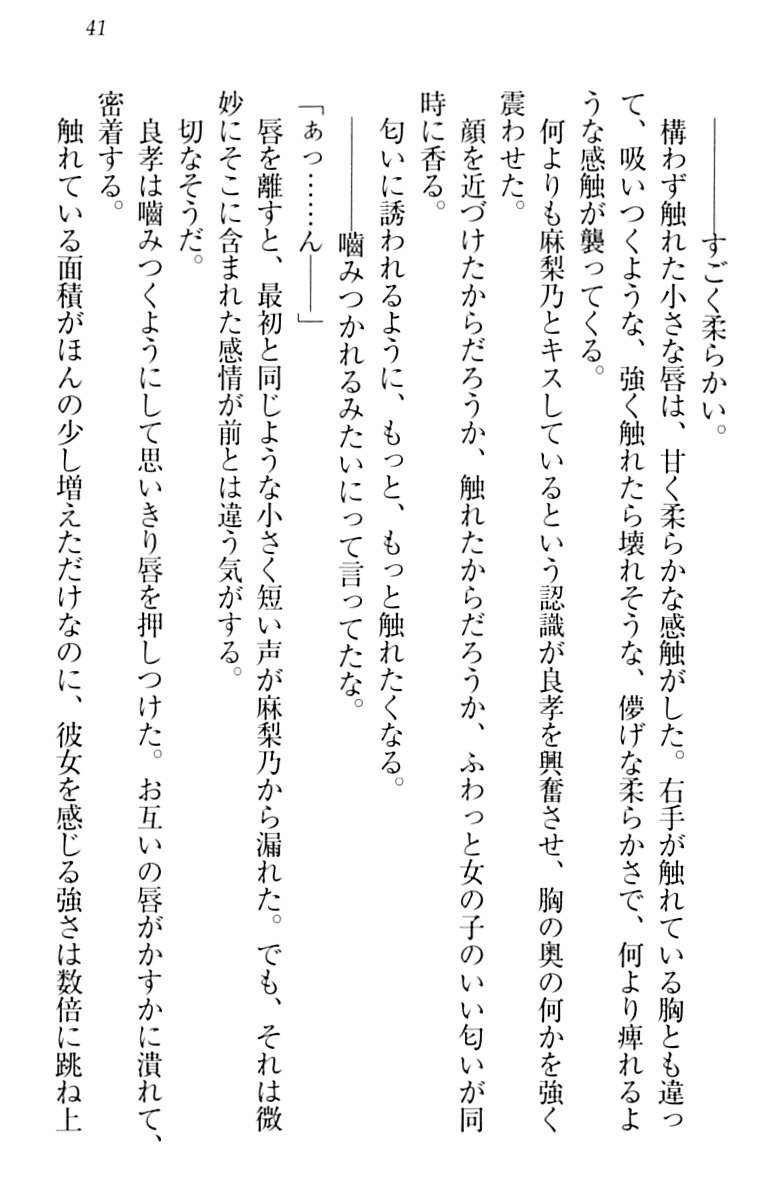 41
――――すごく柔らかい。
構わず触れた小さな唇は、甘く柔らかな感触がした。右手が触れている胸とも違っ
て、吸いつくような、強く触れたら壊れそうな、儚げな柔らかさで、何より痺れるよ
うな感触が襲ってくる。
何よりも麻梨乃とキスしているという認識が良孝を興奮させ、胸の奥の何かを強く
震わせた。
顔を近づけたからだろうか、触れたからだろうか、ふわっと女の子のいい匂いが同
時に香る。
匂いに誘われるように、もっと、もっと触れたくなる。
――――嚙みつかれるみたいにって言ってたな。
「ぁっ……ん――」
唇を離すと、最初と同じような小さく短い声が麻梨乃から漏れた。でも、それは微
妙にそこに含まれた感情が前とは違う気がする。
切なそうだ。
良孝は嚙みつくようにして思いきり唇を押しつけた。お互いの唇がかすかに潰れて、
密着する。
触れている面積がほんの少し増えただけなのに、彼女を感じる強さは数倍に跳ね上